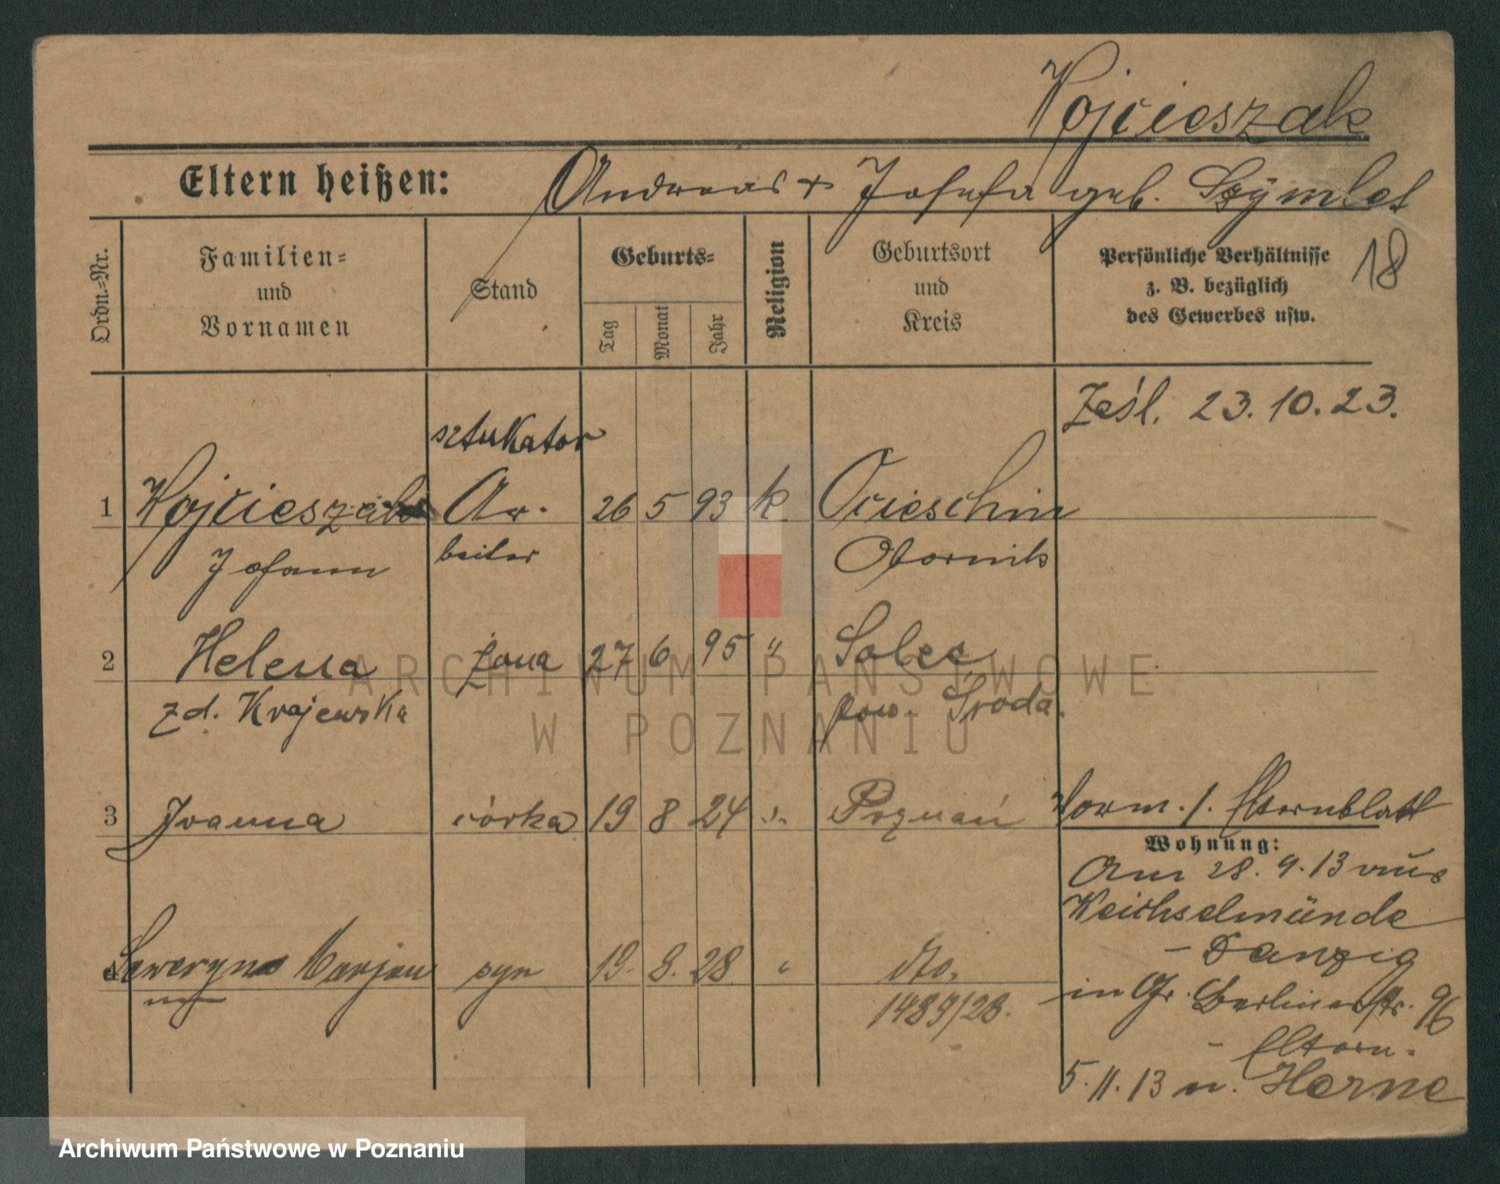 Wojcieszak
Eltern heißen: Andreas + Josefa geb. Szymlet
18
Ordn.-Nr.
Familien-
und
Vornamen
Stand
Geburts-
Tag
Monat
Jahr
Religion
Geburtsort
und
Kreis
Persönliche Verhältnisse
z. B. bezüglich
des Gewerbes usw.
Ześl. 23.10.23.
sztukator
1 Wojcieszak Ar- 26 5 93 k Ocieschin
Johann beiter Obornik
2 Helena żona 27 6 95 " Solec
zd. Krajewska pow. Środa.
3 Joanna córka 19 8 24 " Poznań
Vorm. s. Elternblatt
Wohnung:
Am 28.9.13 aus
Weichselmünde
- Danzig
4 Seweryn Marjan syn 19. 8. 28 " dto.
1489/28.
in Gr. Berlinerstr. 96
- Eltern.
5.11.13 n. Herne
ARCHIWUM PAŃSTWOWE
W POZNANIU
Archiwum Państwowe w Poznaniu